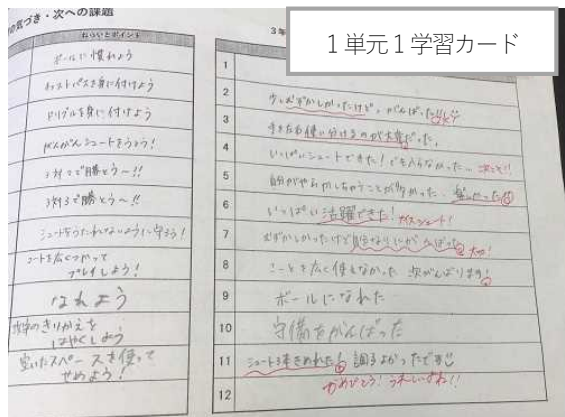 の気づき・次への課題
ねらいとポイント
ボールに慣れよう
チェストパスを身に付けよう
ドリブルを身に付けよう
がんがんシュートをうとう!
3対2で勝とう~!!
3対3で勝とう~!!
シュートをうたれないように守ろう!
コートを広くつかって
プレイしよう!
なれよう
攻守のきりかえを
はやくしよう
空いたスペースを使って
せめよう!
1単元1学習カード
3年
1
2 少しむずかしかったけど、がんばった!!
3 手を使い分けるのが大変だった。
4 いっぱいシュートできた!でも入らなかった… 次こそ!!
5 自分がやらかしちゃうことが多かった。楽しかった
6 いっぱい活躍できた! ナイスシュート!
7 むずかしかったけど自分なりにがんばった
8 コートを広く使えなかった 次がんばります!
9 ボールになれた
10 守備をがんばった
11 シュート3本きめれた! 調子よかったです
おめでとう! うれしいよね!!
12